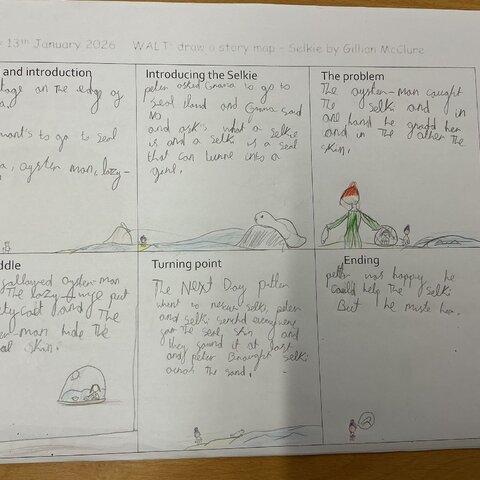 13th January 2026 WALT: draw a story map - Selkie by Gillian McClure
and introduction
tage on the edge of
a.
wants to go to seal
a, oyster man, lazy-
Introducing the Selkie
peter asted Grana to go to
seal iland and Grana said
NO
and ask's what a selkie
is and a selki is a seal
that can turne into a
girl.
The problem
The oyster-man caught
The selki and in
one hand he grabd her
and in the other the
skin.
ddle
gallowed oyster-man
The lazy put
cat and The
-man hide the
al skin.
Turning point
The NEXT Day peter
went to rescue selki, peter
and selki serchd
for the seal skin and
they found it at last
and peter Braught selki
acros the sand.
Ending
peter was happy he
could help The selki
But he miste her.